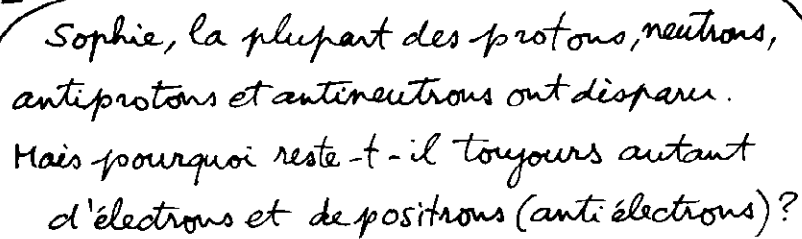 Sophie, la plupart des protons, neutrons,
antiprotons et antineutrons ont disparu.
Mais pourquoi reste-t-il toujours autant
d'électrons et de positrons (antiélectrons)?